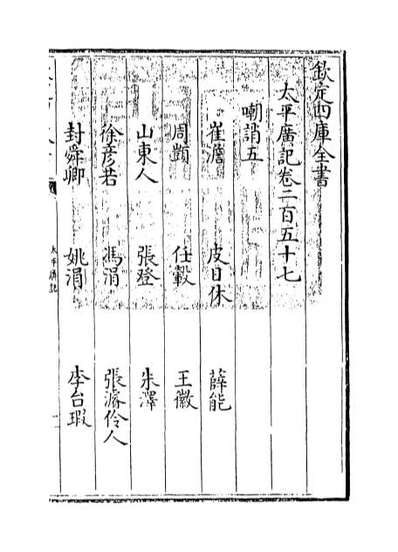 欽定四庫全書
太平廣記卷二百五十七
嘲誚五
崔澹 皮日休 薛能
周顗 任轂 王徽
山東人 張登 朱澤
徐彦若 馮涓 張濬伶人
封舜卿 姚洎 李台瑕
太平廣記